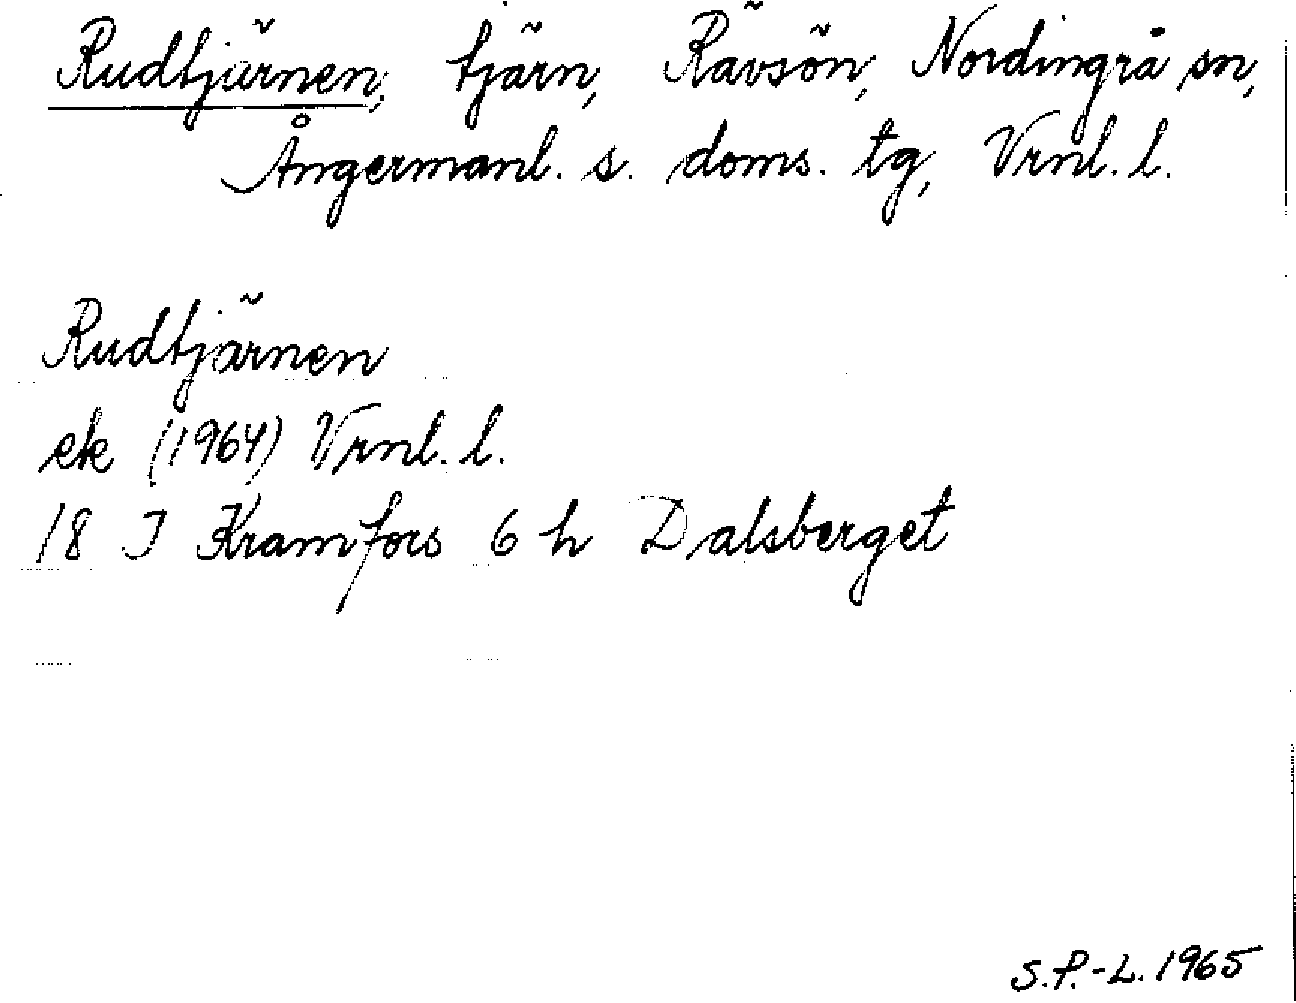 Rudtjärnen, tjärn, Rävsön, Nordingrå sn,
Ångermanl. s. doms. tg, Vrnl. l.
Rudtjärnen
ek (1964) Vrnl. l.
18 I Kramfors 6 h Dalsberget
S.P.-L. 1965